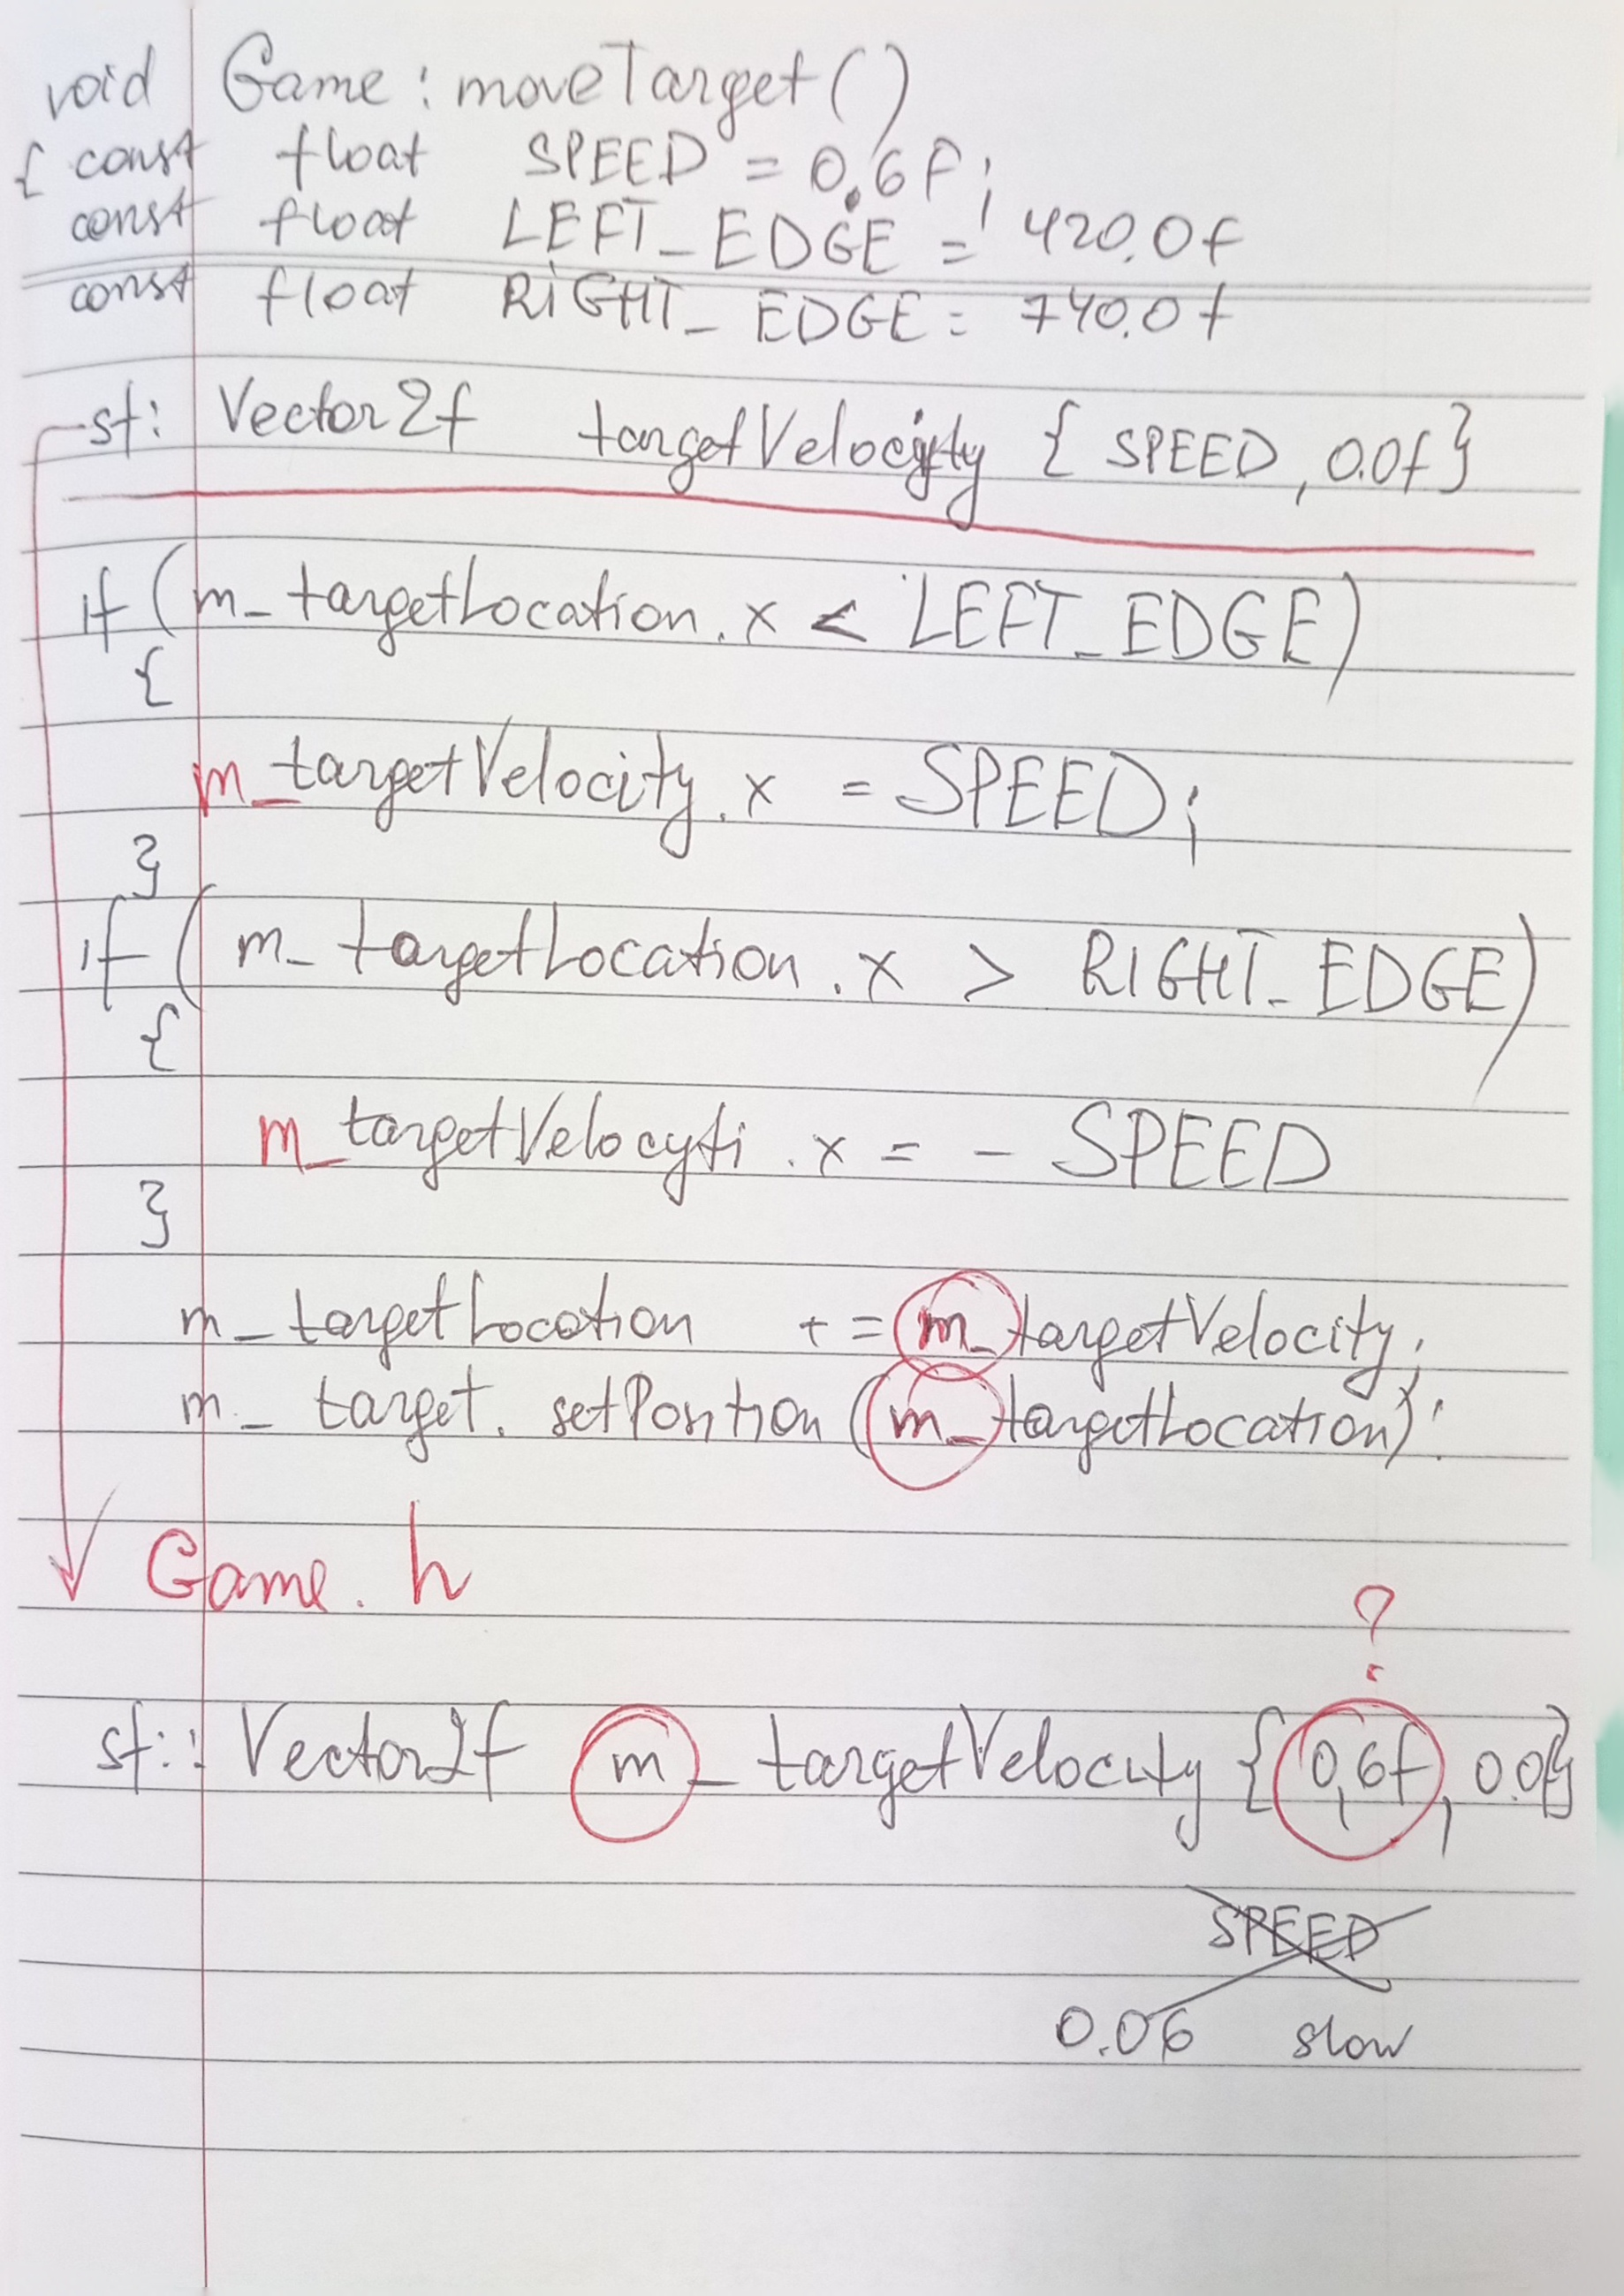 void Game : moveTarget ()
{ const float SPEED = 0.6F ;
const float LEFT_EDGE = 420.0f
const float RIGHT_EDGE = 740.0f
sf: Vector2f targetVelocity { SPEED, 0.0f }
if ( m_targetLocation.x < LEFT_EDGE )
{
m_targetVelocity.x = SPEED ;
}
if ( m_targetLocation.x > RIGHT_EDGE )
{
m_targetVelocyti.x = - SPEED
}
m_targetLocation += m_targetVelocity ;
m_target. setPosition ( m_targetLocation ) :
Game. h
?
sf:: Vector2f m_targetVelocity { 0,6f , 0.0f }
SPEED
0.06 slow